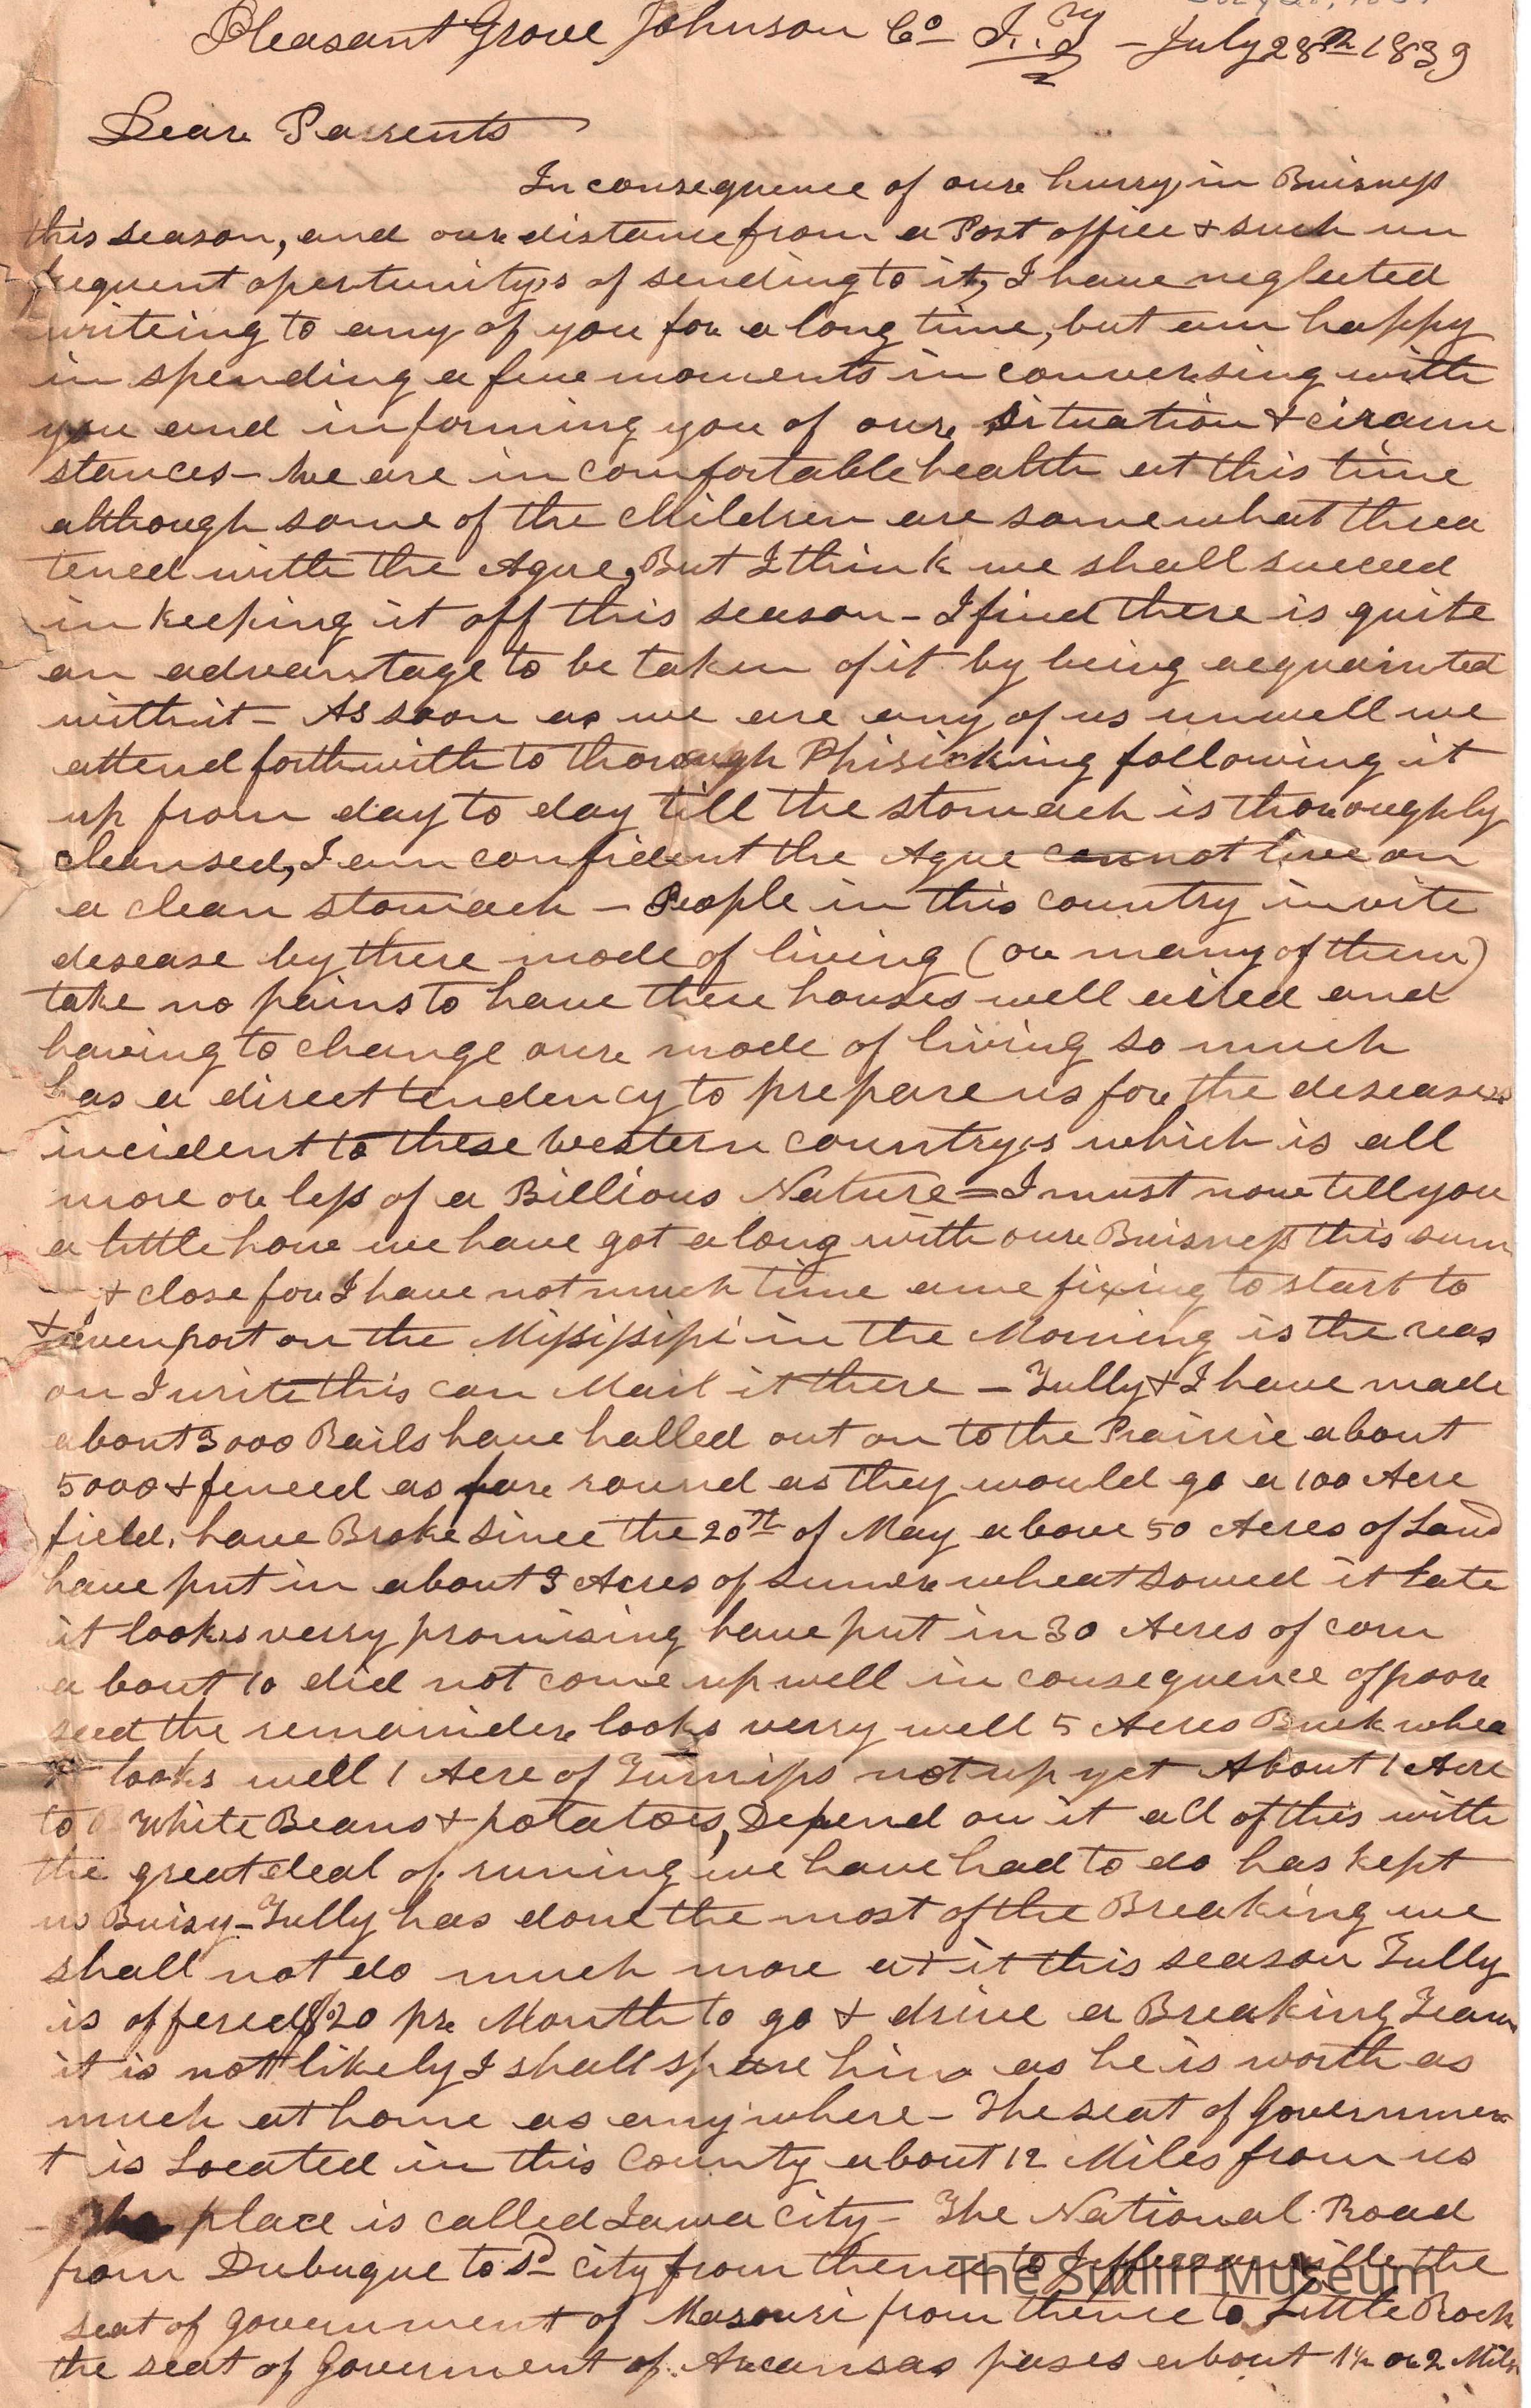 Pleasant Grove Johnson Co I.. Ty - July 28th 1839
Dear Parents
In consequence of oure hurry in Buisness
this season, and oure distance from a Post office & such un
frequent opertunitys of sending to it, I have neglected
writeing to any of you for a long time, but am happy
in spending a fiew moments in conversing with
you and informing you of oure situation & circum
stances - We are in comfortable health at this time
although some of the children are somewhat threa
tened with the Ague, But I think we shall succeed
in keeping it off this season - I find there is quite
an advantage to be taken of it by being acquainted
with it - As soon as we are any of us unwell we
attend forthwith to thorough Phisicking following it
up from day to day till the stomach is thoroughly
cleansed, I am confident the Ague cannot live on
a clean stomach - People in this country invite
desease by there mode of living (or many of them)
take no pains to have there houses well aired and
having to change oure mode of living so much
has a direct tendency to prepare us for the deseases
incident to these western countrys which is all
more or less of a Billious Nature = I must now tell you
a little how we have got along with oure Buisness this sum
& close for I have not much time ame fixing to start to
Davenport on the Missisipi in the Morning is the reas
on I write this can Mail it there - Tully & I have made
about 3000 Rails have halled out on to the Prairie about
5000 & fenced as fare round as they would go a 100 Acre
field, have Broke since the 20th of May above 50 Acres of Land
have put in about 3 Acres of sumer wheat sowed it late
it looks verry promising have put in 30 Acres of corn
about 10 did not come up well in consequence of poore
seed the remainder looks verry well 5 Acres Buck whea
t looks well 1 Acre of Turnips not up yet About 1 Acre
to White Beans & potatoes, Depend on it all of this with
the great deal of runing we have had to do has kept
us Buisy - Tully has done the most of the Breaking we
shall not do much more at it this season Tully
is offered $20 pr Month to go & drive a Breaking Team
it is not likely I shall spare him as he is worth as
much at home as anywhere - The seat of Governmen
t is Located in this County about 12 Miles from us
The place is called Iawa City - The National Road
from Dubuque to Sd city from thence to Jeffersonville the
seat of government of Masouri from thence to Little Rock
the seat of Goverment of Arcansas pases about 1½ or 2 Miles
The Sutliff Museum